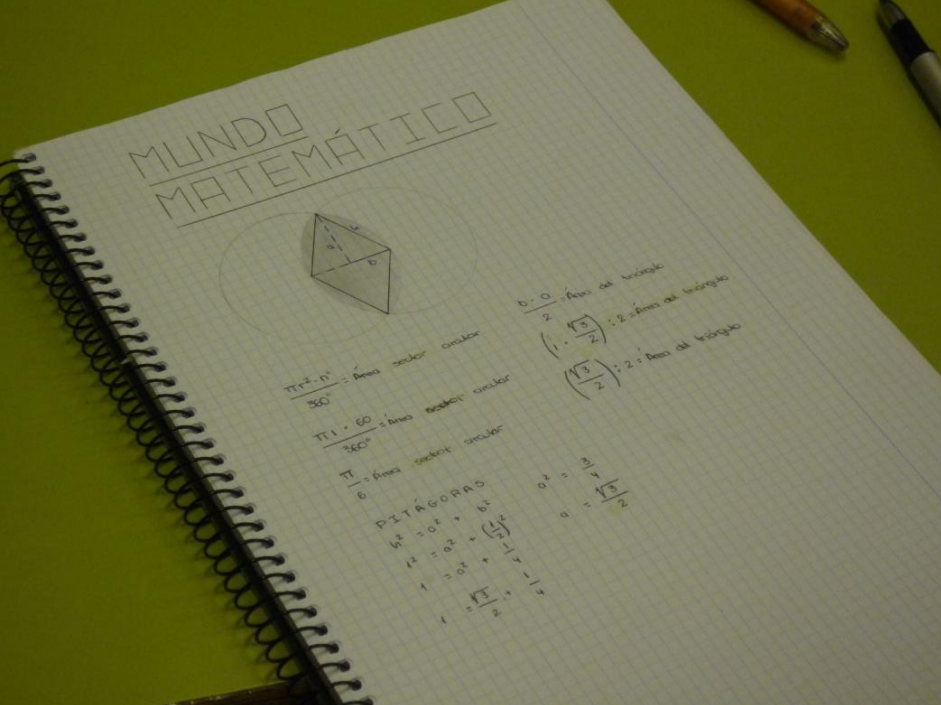 MUNDO
MATEMÁTICO
a h
b
πr²·n°/360° = Área sector circular
π1·60/360° = Área sector circular
π/6 = Área sector circular
b·a/2 = Área del triángulo
(1·√3/2):2 = Área del triángulo
(√3/2):2 = Área del triángulo
PITÁGORAS
h² = a² + b²
1² = a² + (1/2)²
1 = a² + 1/4
1 = √3/2 + 1/4
a² = 3/4
a = √3/2